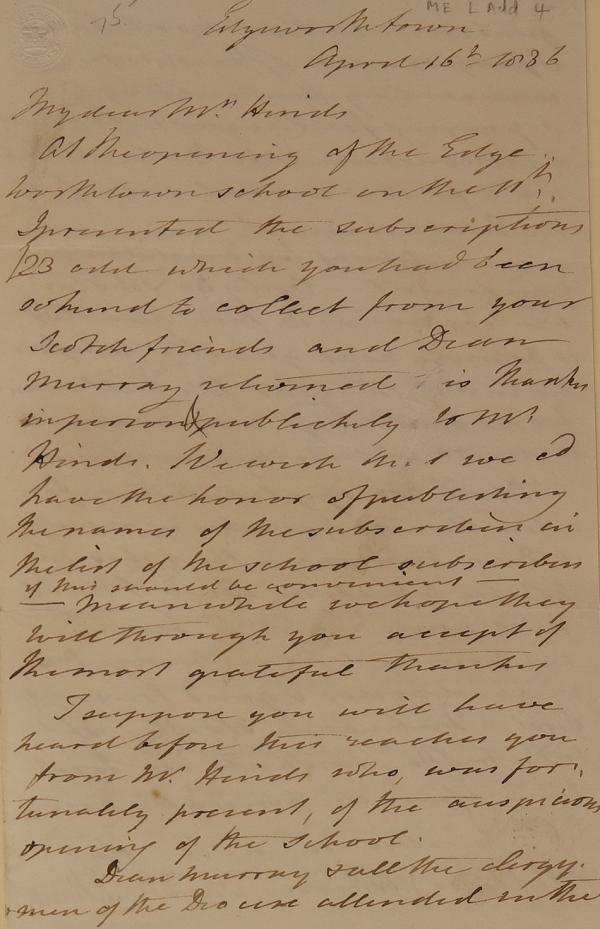 75
ME L Add 4
Edgeworthstown
April 16th 1886
My dear Mrs Hinds
At the opening of the Edge
worthstown school on the 11th
I presented the subscriptions
£23 odd which you had been
so kind to collect from your
Scotch friends and Dean
Murray returned his thanks
in person & publickly to Mr
Hinds. We wish that we cd
have the honor of publishing
the names of the subscribers in
the list of the school subscribers
if this would be convenient —
— Meanwhile we hope they
will through you accept of
the most grateful thanks
I suppose you will have
heard before this reaches you
from Mr. Hinds who, was for-
tunately present, of the auspicious
opening of the School.
Dean Murray & all the clergy-
men of the Diocese attended in the